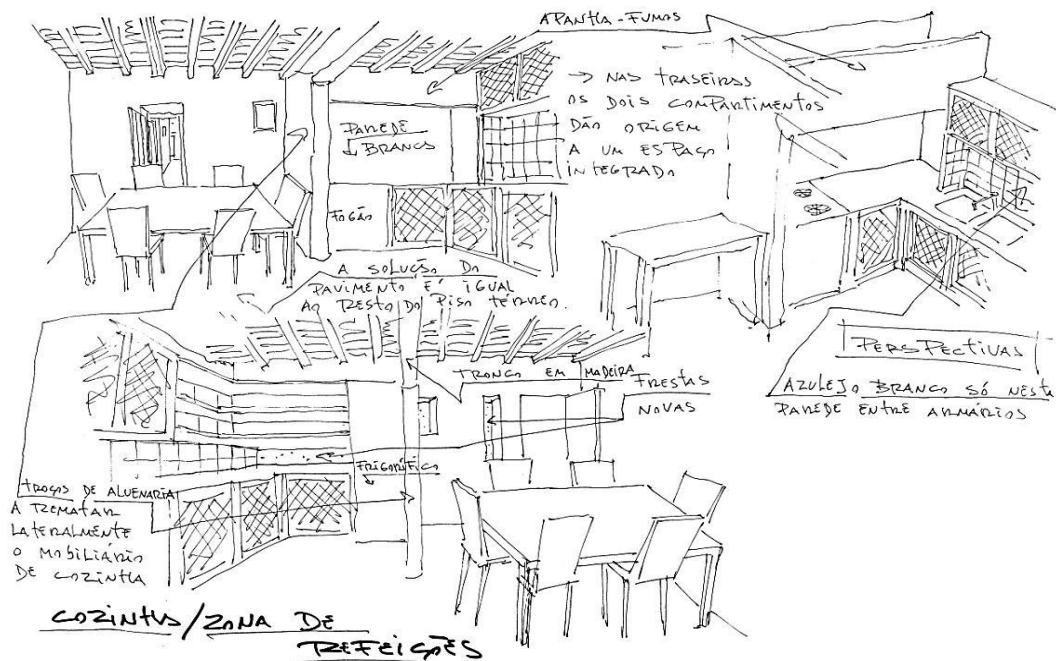 APANHA-FUMOS
→ NAS TRASEIRAS
OS DOIS COMPARTIMENTOS
DÃO ORIGEM
A UM ESPAÇO
INTEGRADO
PAREDE
BRANCA
FOGÃO
A SOLUÇÃO DO
PAVIMENTO É IGUAL
AO RESTO DO PISO TÉRREO.
PERSPECTIVAS
AZULEJO BRANCO SÓ NESTA
PAREDE ENTRE ARMÁRIOS
TRONCO EM MADEIRA
FRESTAS
NOVAS
FRIGORÍFICO
TROÇOS DE ALVENARIA
A REMATAR
LATERALMENTE
O MOBILIÁRIO
DE COZINHA
COZINHA/ZONA DE
REFEIÇÕES